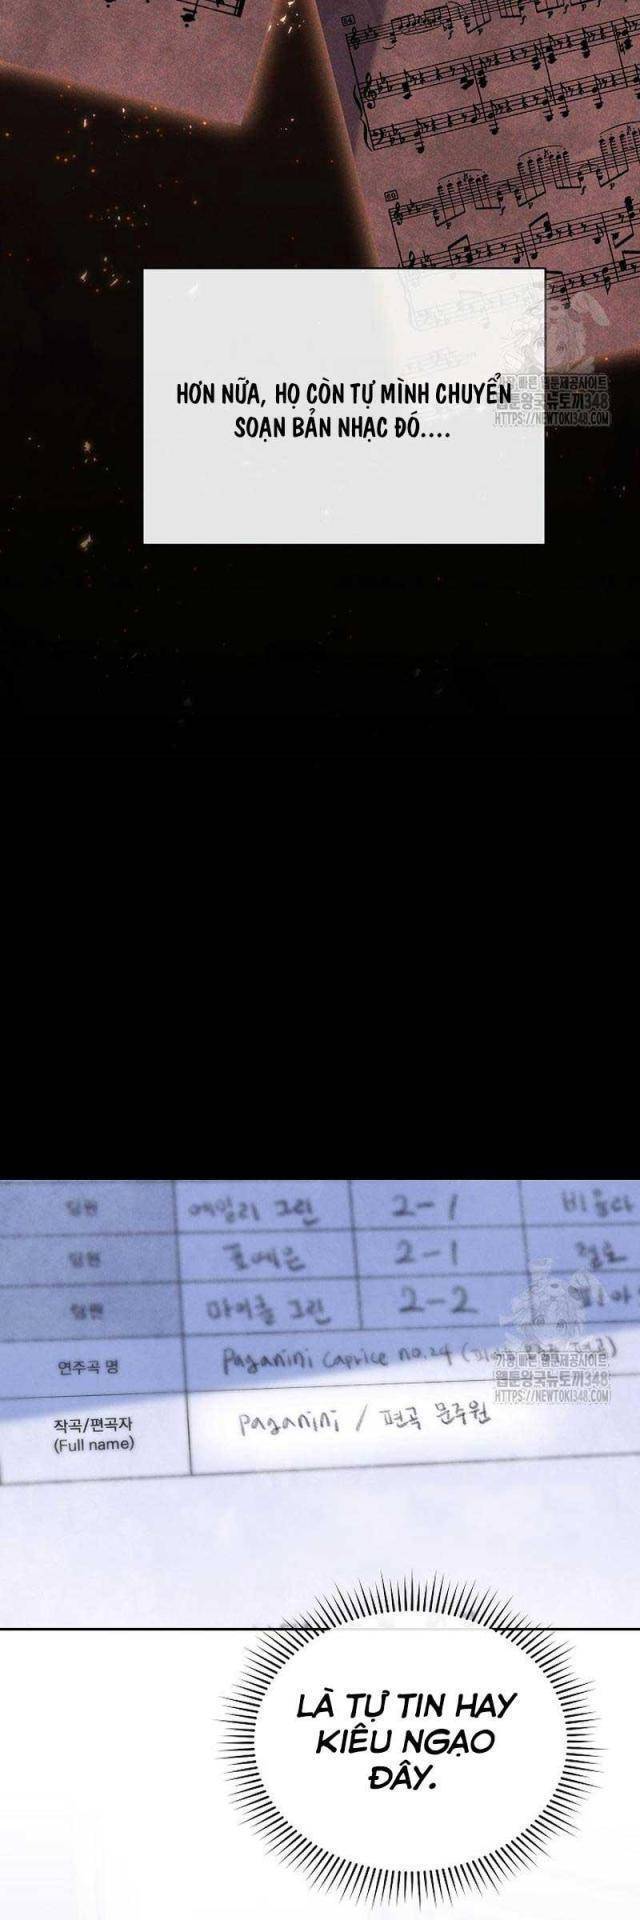 64
60
HƠN NỮA, HỌ CÒN TỰ MÌNH CHUYỂN
SOẠN BẢN NHẠC ĐÓ....
가장빠른 웹툰제공사이트
웹툰왕국뉴토끼348
HTTPS://NEWTOKI348.COM
팀원 에밀리 그린 2-1 비올라
팀원 2-1 첼로
팀원 마이클 그린 2-2
연주곡 명 Paganini Caprice no.24
가장빠른 웹툰제공사이트
웹툰왕국뉴토끼348
HTTPS://NEWTOKI348.COM
작곡/편곡자 Paganini / 편곡 문주원
(Full name)
LÀ TỰ TIN HAY
KIÊU NGẠO
ĐÂY.